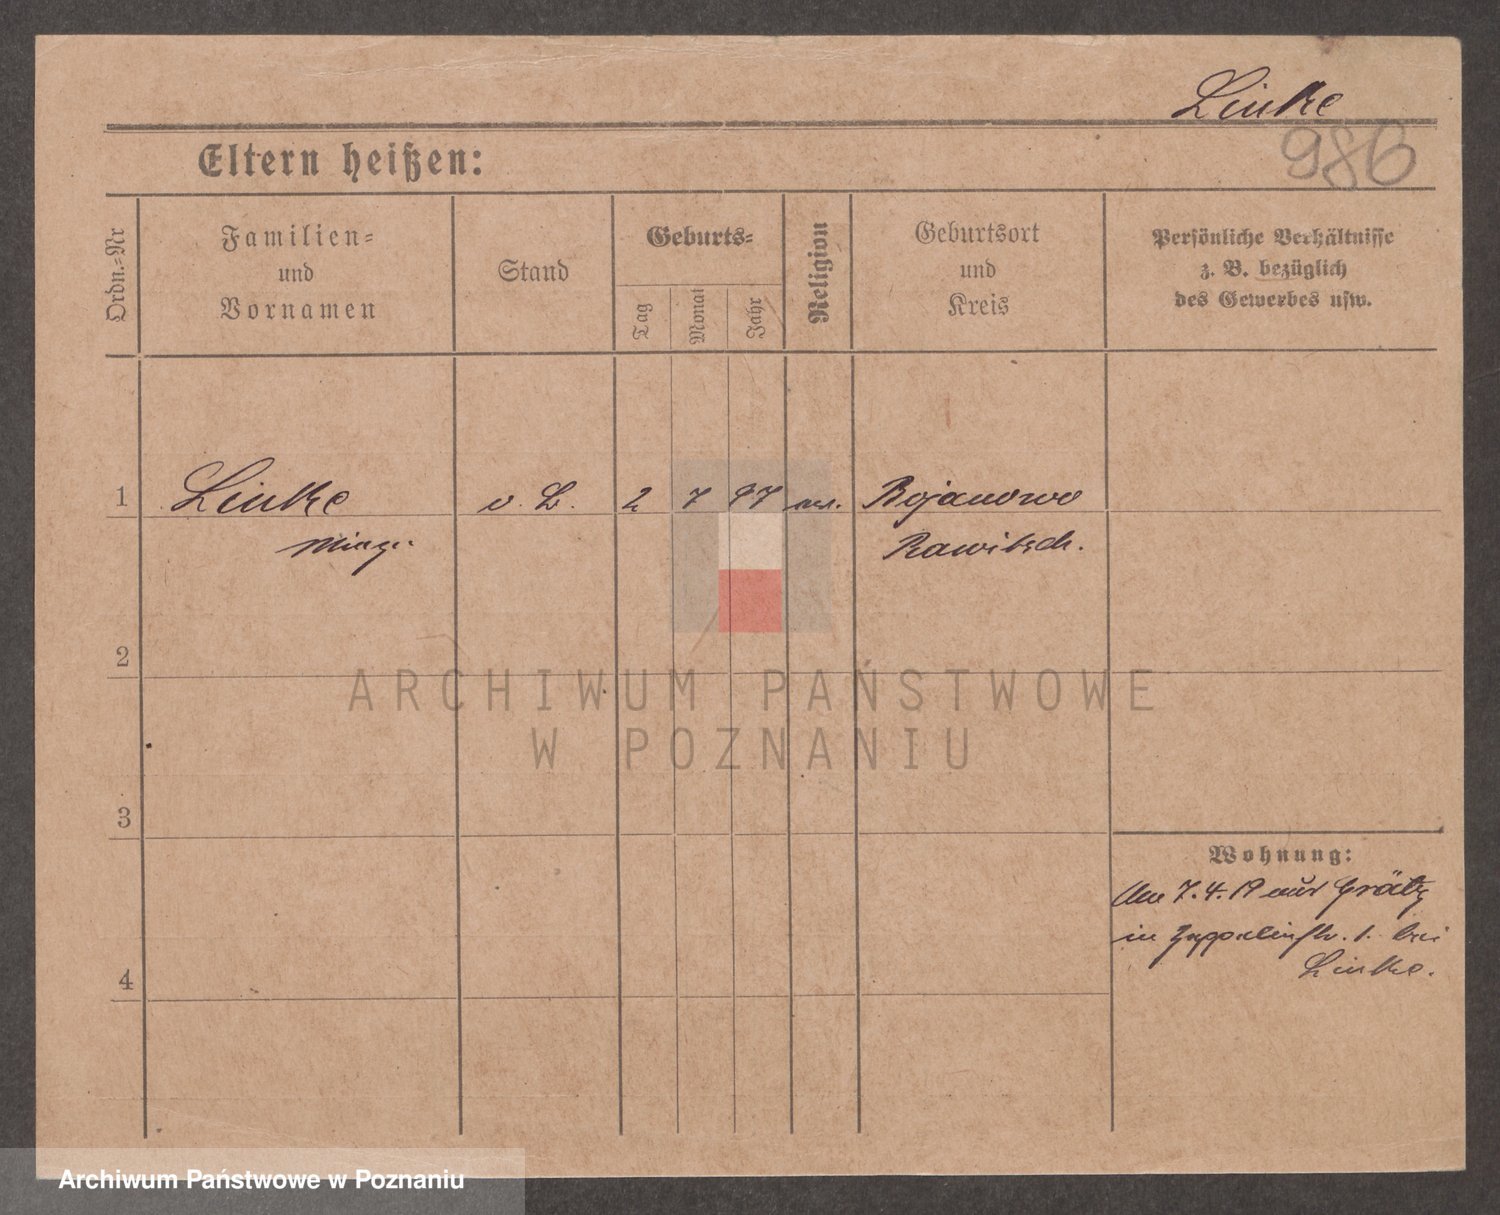 Linke
986
Eltern heißen:
Ordn.-Nr
Familien-
und
Vornamen
Stand
Geburts-
Tag
Monat
Jahr
Religion
Geburtsort
und
Kreis
Persönliche Verhältnisse
z. B. bezüglich
des Gewerbes usw.
1 Linke o. B. 2 7 97 Bojanowo
Rawitsch.
2
3
4
Wohnung:
Am 7.4.19 aus Grätz
in Zeppelinstr. 1. bei
Linke.
ARCHIWUM PAŃSTWOWE
W POZNANIU
Archiwum Państwowe w Poznaniu